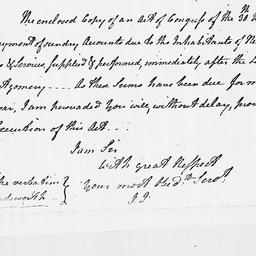 The enclosed Copy of an Act of Congress of the 30th
payment of sundry Accounts due to the Inhabitants of Ne
s & Services, supplied & performed, immediately after the
tgomery —— As these Sums have been due for m
ear, I am persuaded you will, without delay, prov
xecution of this Act. —
I am Sir
with great Respect
your most Obedt. Servt.
J. J.
the verbatim }
dsworth — }